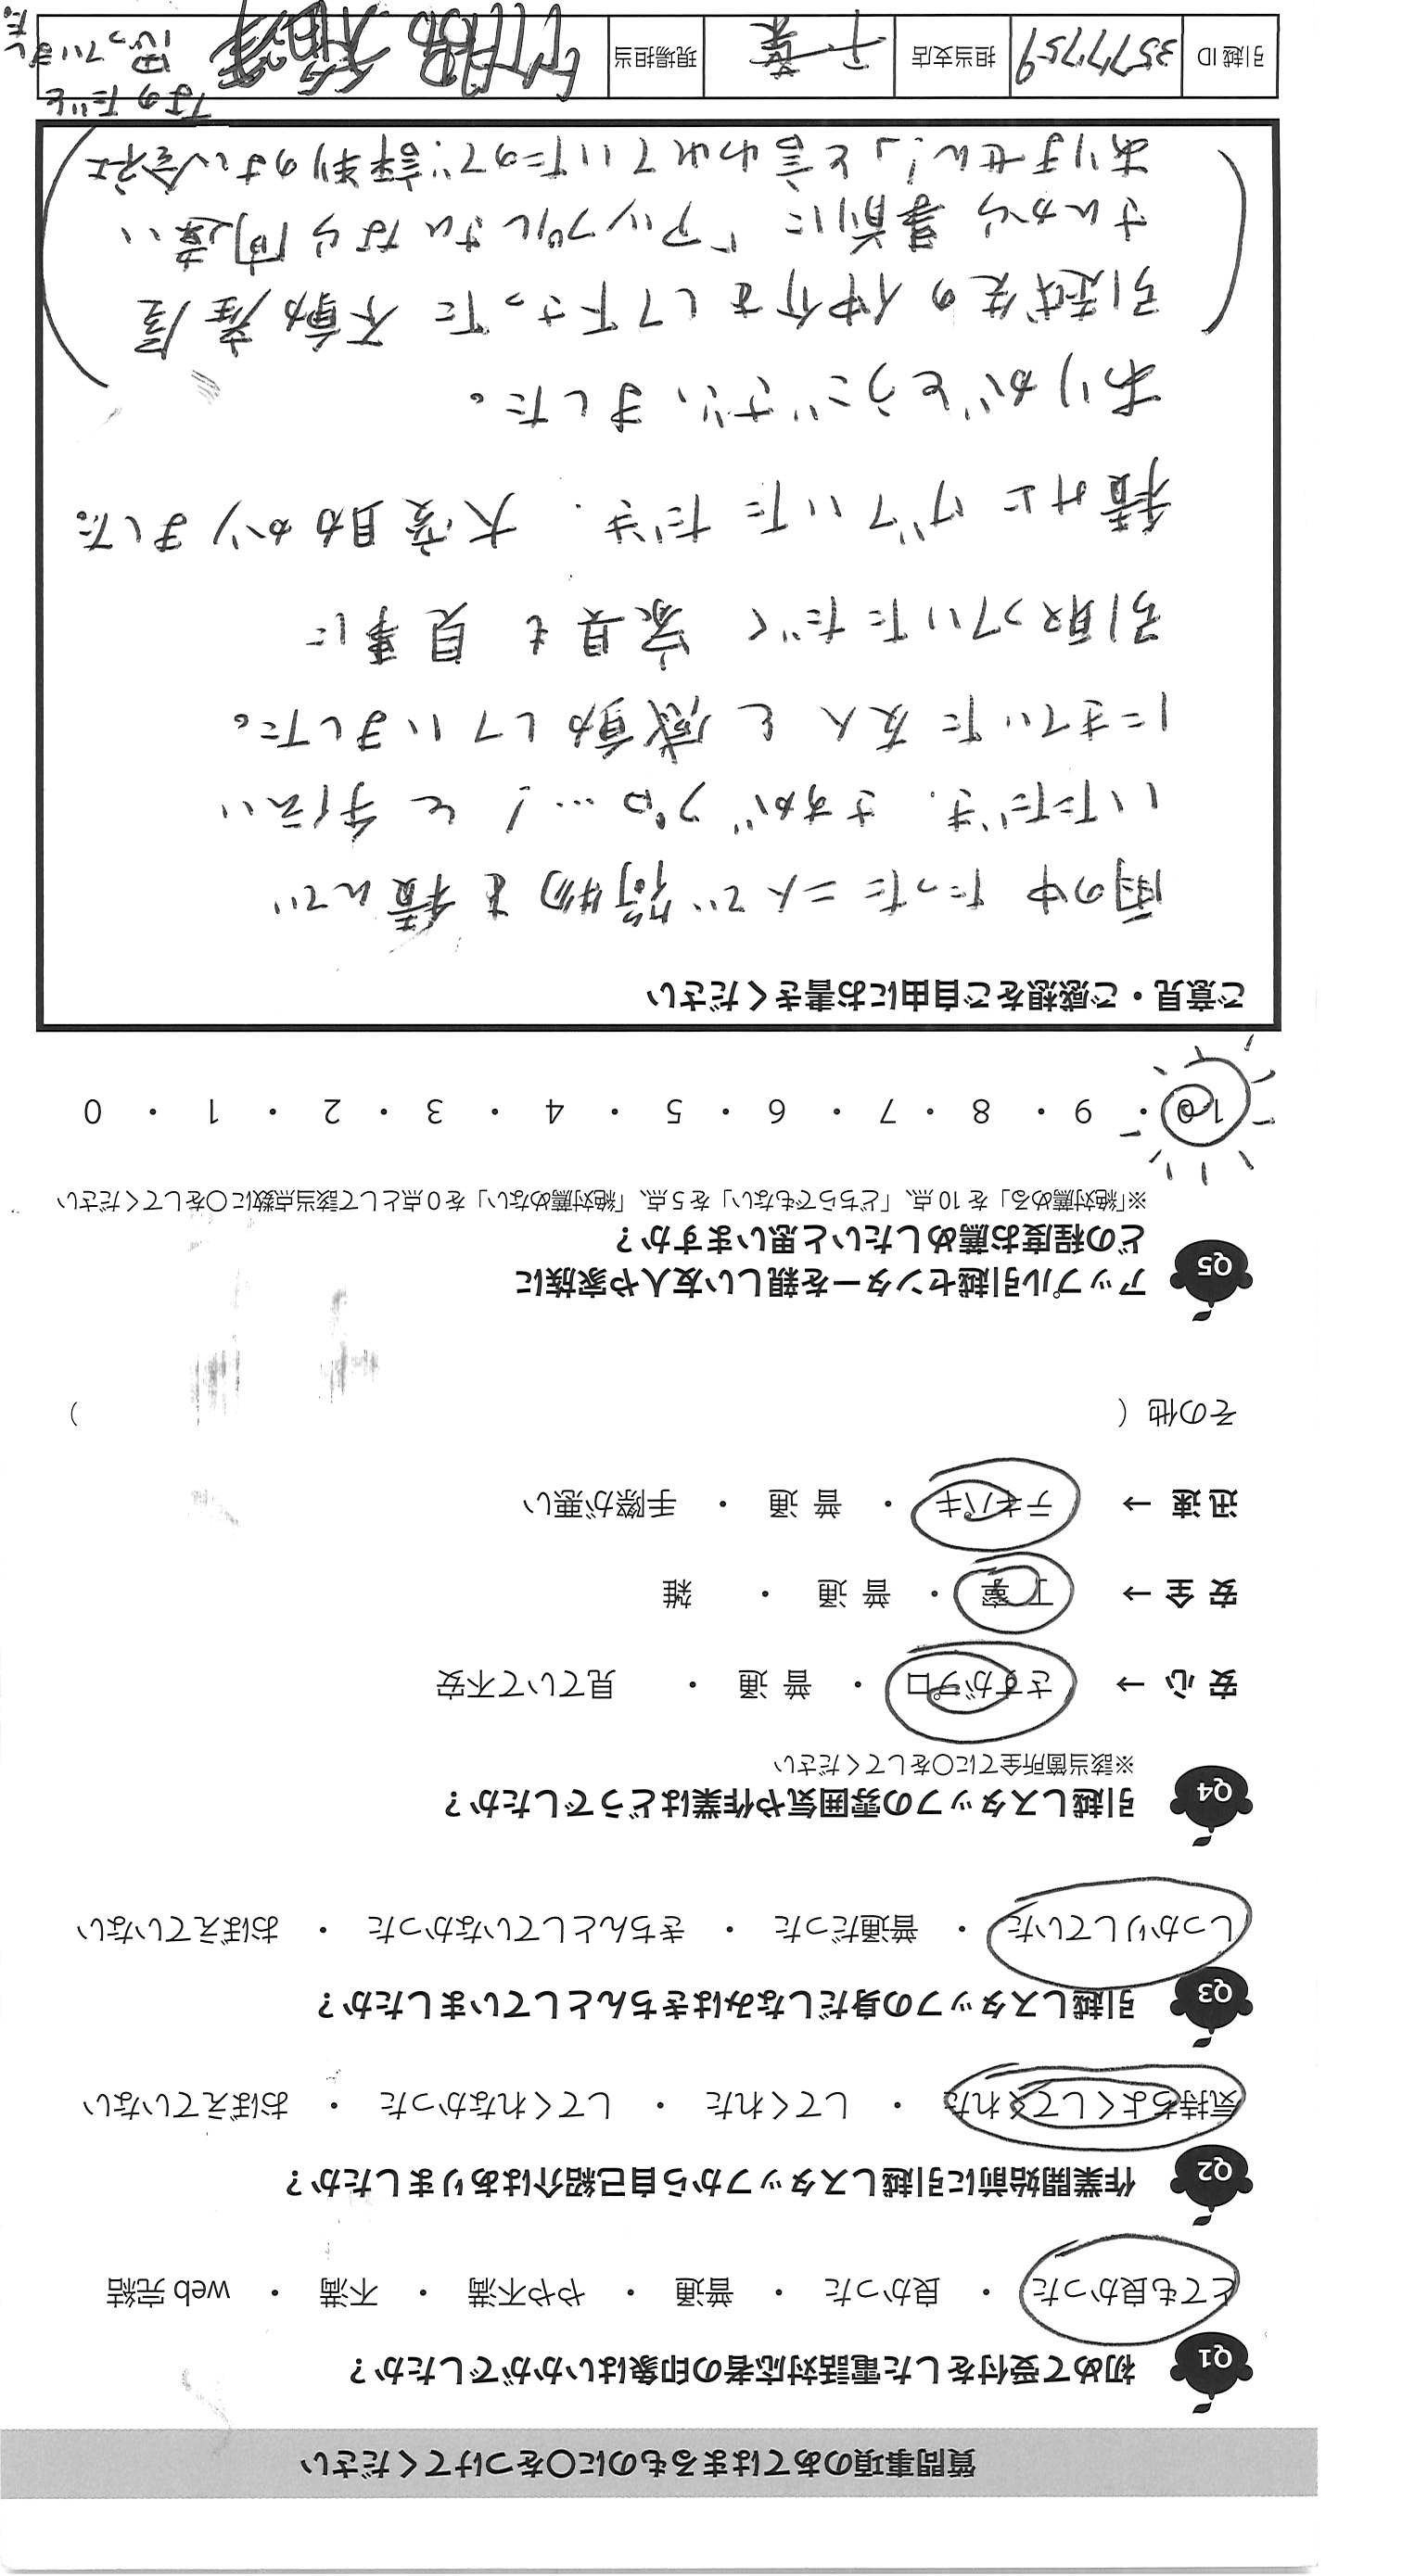 質問事項のあてはまるものに〇をつけてください
Q1 初めて受付をした電話対応者の印象はいかがでしたか？
とても良かった ・ 良かった ・ 普通 ・ やや不満 ・ 不満 ・ web 完結
Q2 作業開始前に引越しスタッフから自己紹介はありましたか？
気持ちよくしてくれた ・ してくれた ・ してくれなかった ・ おぼえていない
Q3 引越しスタッフの身だしなみはきちんとしていましたか？
しっかりしていた ・ 普通だった ・ きちんとしていなかった ・ おぼえていない
Q4 引越しスタッフの雰囲気や作業はどうでしたか？
※該当箇所全てに〇をしてください
安 心 → さすがプロ ・ 普 通 ・ 見ていて不安
安 全 → 丁寧 ・ 普 通 ・ 雑
迅 速 → テキパキ ・ 普 通 ・ 手際が悪い
その他 （ ）
Q5 アップル引越センターを親しい友人や家族に
どの程度お薦めしたいと思いますか？
※「絶対薦める」を 10 点、「どちらでもない」を 5 点、「絶対薦めない」を 0 点として該当点数に〇をしてください
10 ・ 9 ・ 8 ・ 7 ・ 6 ・ 5 ・ 4 ・ 3 ・ 2 ・ 1 ・ 0
ご意見・ご感想をご自由にお書きください
雨の中 たった二人で荷物を積んで
いただき、さすがプロ…! と手伝い
にきていた友人と感動していました。
引取っていただく家具も見事に
積み上げていただき、大変助かりました
ありがとうございました。
(引越先の仲介をして下さった不動産屋
さんから事前に「アップルさんなら間違い
ありません!」と言われていたので評判のよい会社
なのだと
思っていました。)
引越 ID 3577759 担当支店 千葉 現場担当